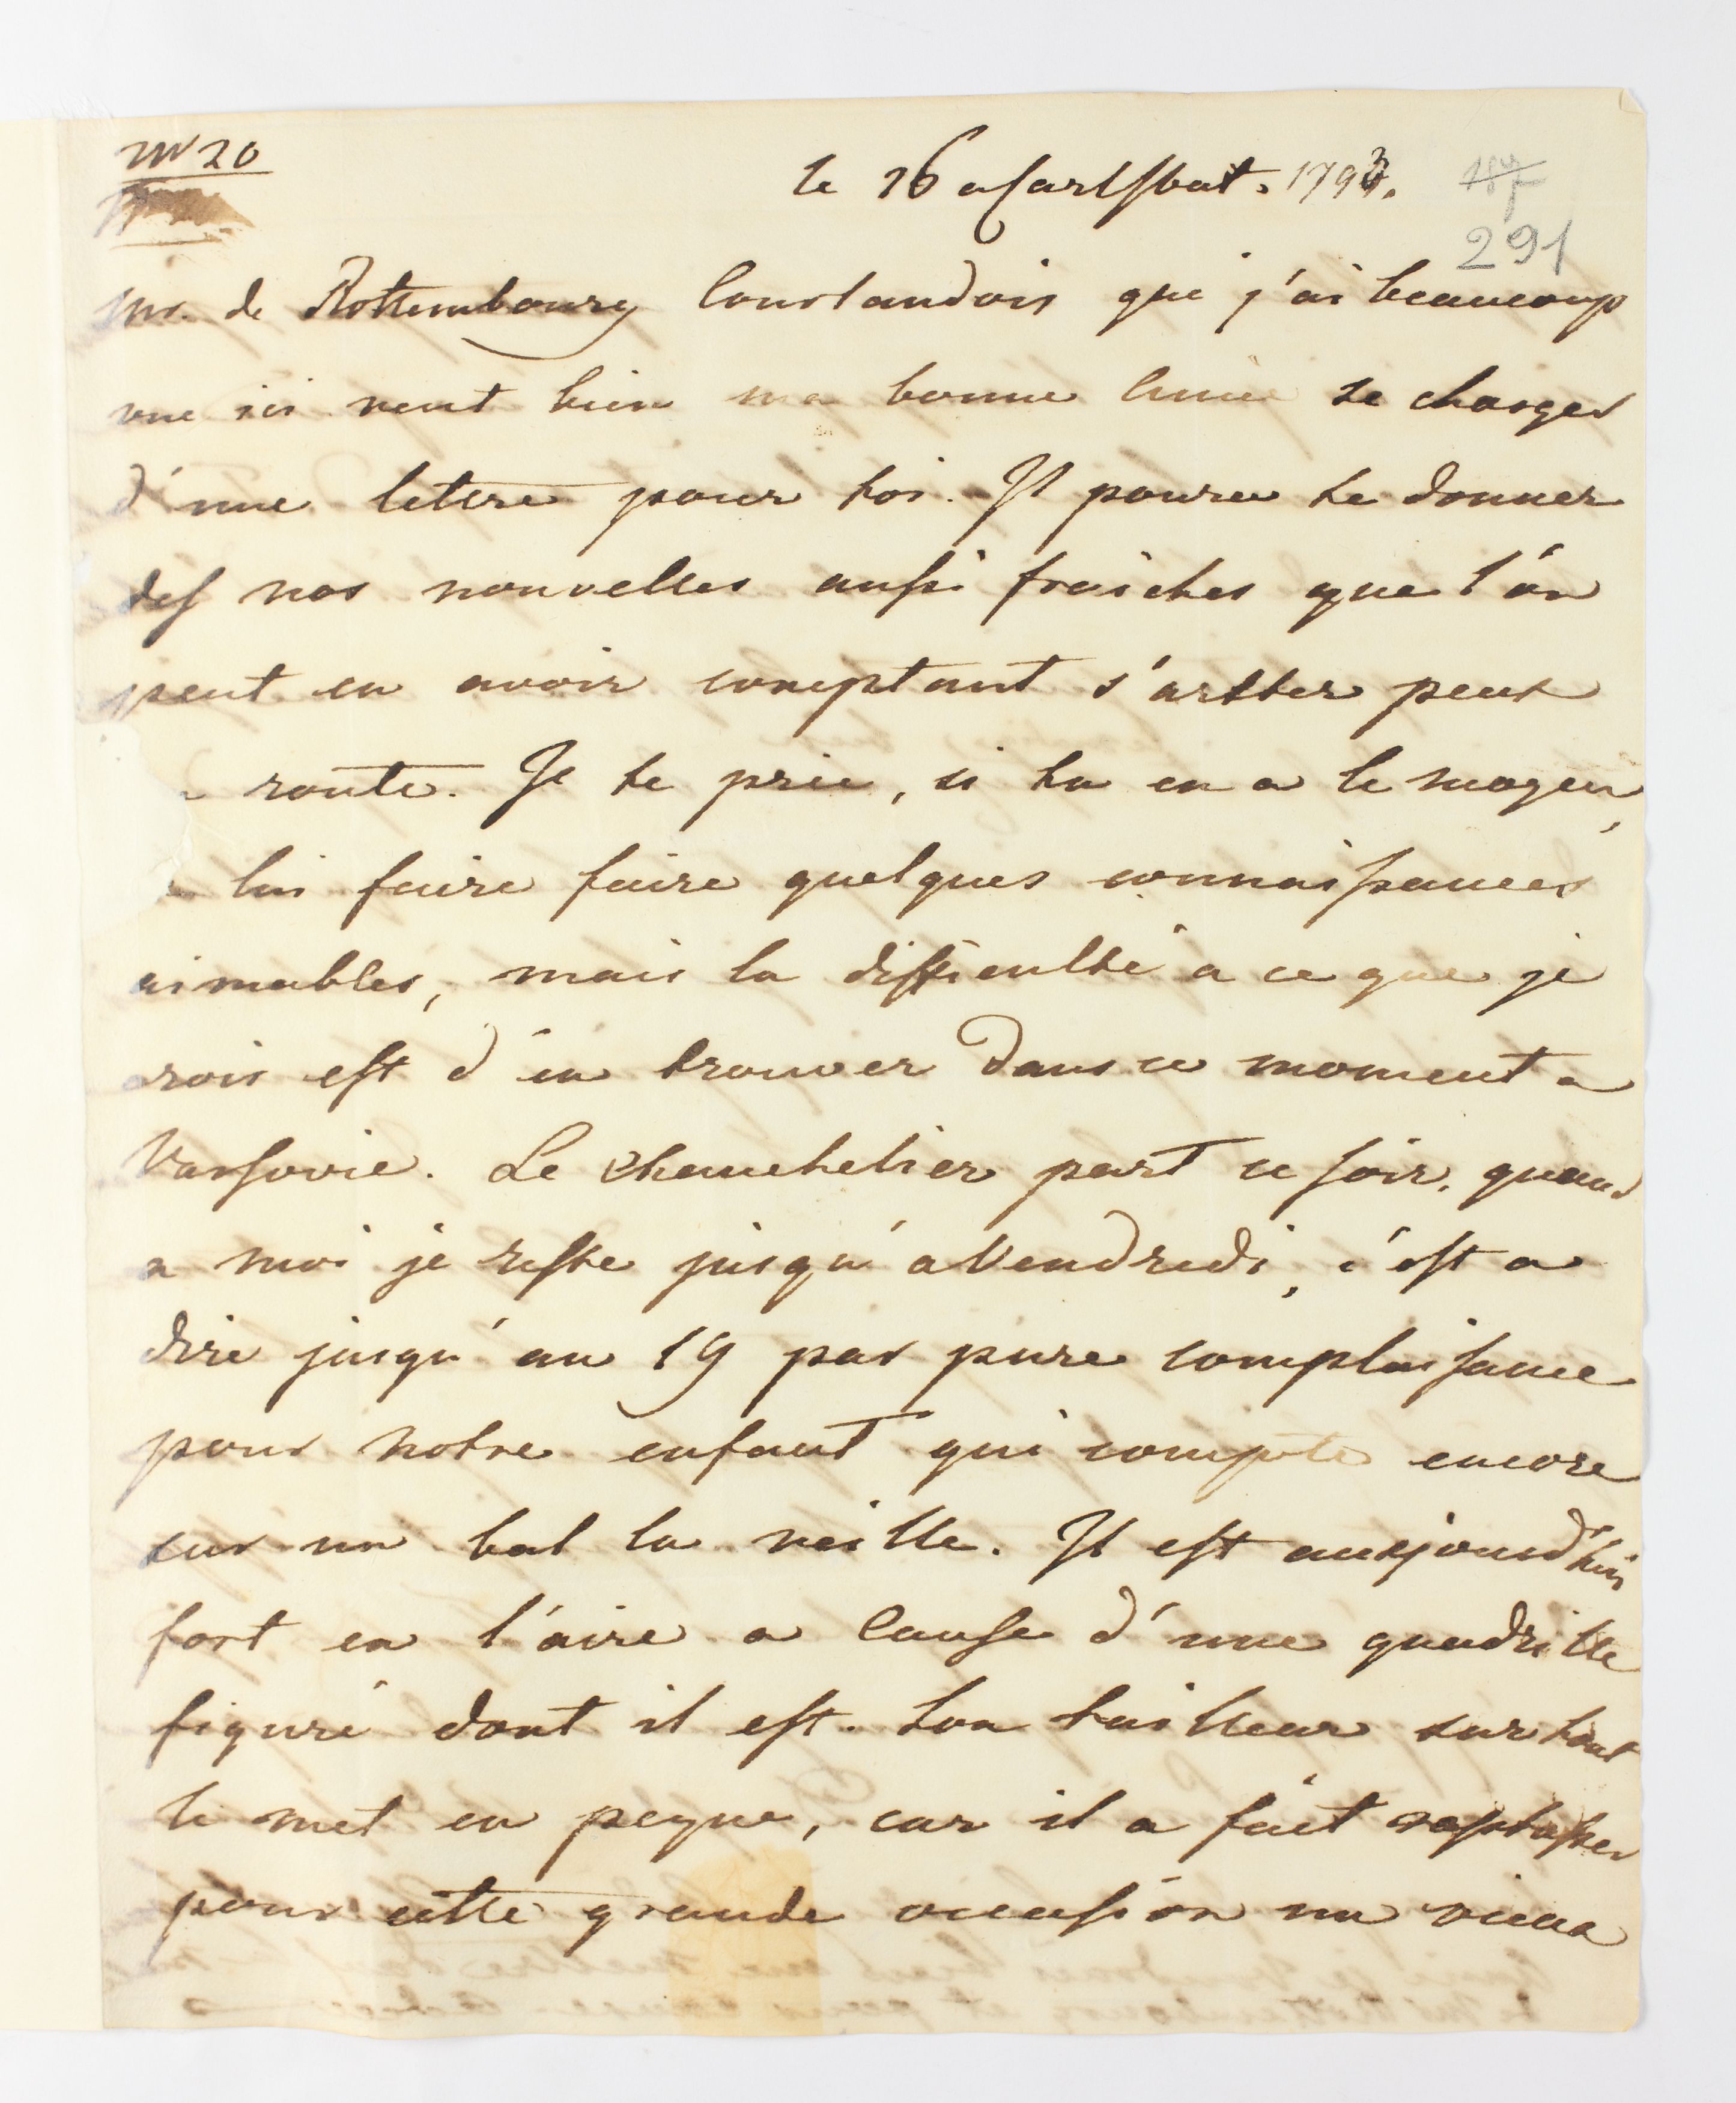 N 20
le 16 a Carlsbat. 1793.
187
291
Mr. de Rottembourg Courlandois que j'ai beaucoup
vue ici veut bien ma bonne Amie se charger
d'une lettre pour toi. Il poura te donner
des nos nouvelles aussi fraiches que l'on
peut en avoir comptant s'arêter peut
route. Je te prie, si tu en a le moyen,
lui faire faire quelques connaissances
aimables, mais la difficulté a ce que je
crois est d'en trouver dans ce moment a
Varsovie. Le Chanchelier part ce soir, quand
a moi je reste jusqu'a Vendredi, c'est a
dire jusqu'au 19 par pure complaisance
pour notre enfant qui compte encore
sur un bal la veille. Il est aujourd'hui
fort en l'aire a Cause d'une quadrille
figuré dont il est. Son tailleur surtout
le met en peyne, car il a fait
pour cette grande occasion un vieux